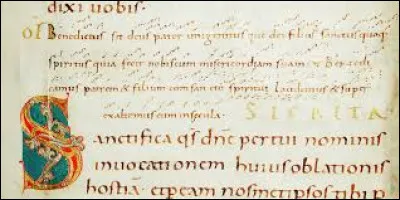 dixi uobis.
OF Benedictus sit deus pater unigenitus que dei filius sanctus quoq
spiritus quia fecit nobiscum misericordiam suam Benedi
camus patrem & filium cum sancto spiritu laudemus & super
exaltemus eum in secula. SECRETA
Sanctifica qs dne per tui nominis
inuocationem huius oblationis
hostiã. & per eam nosmetipsos tibi p